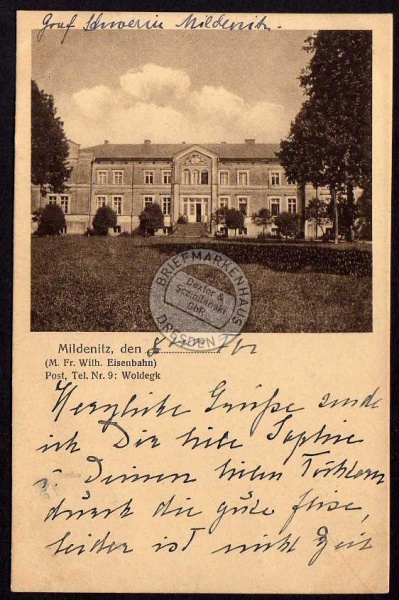 Graf Schwerin Mildenitz.
BRIEFMARKENHAUS
Dexter &
Scznilanski
GbR
DRESDEN
Mildenitz, den
(M. Fr. Wilh. Eisenbahn)
Post, Tel. Nr. 9: Woldegk
Herzliche Grüße sende
ich Dir liebe Sophie
u. Deinen lieben Töchtern
durch die gute
leider ist nicht Zeit